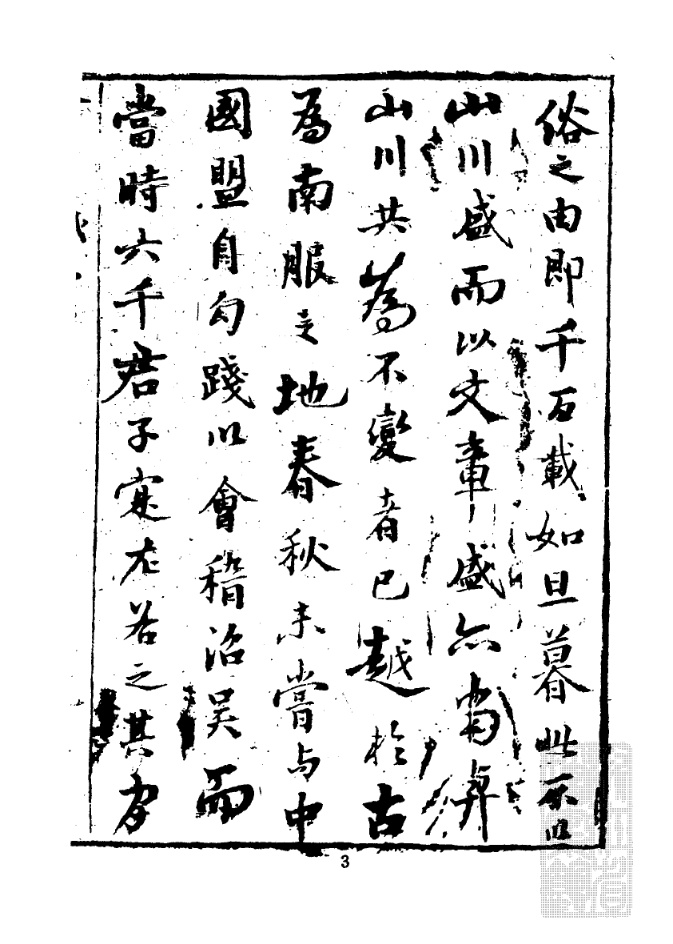 俗之由即千石載如旦暮此不與
山川盛而以文章盛亦當與
山川共為不變者已越於古
為南服之地春秋未嘗与中
國盟自勾踐以會稽沼吳而
當時六千君子寔左右之其
3